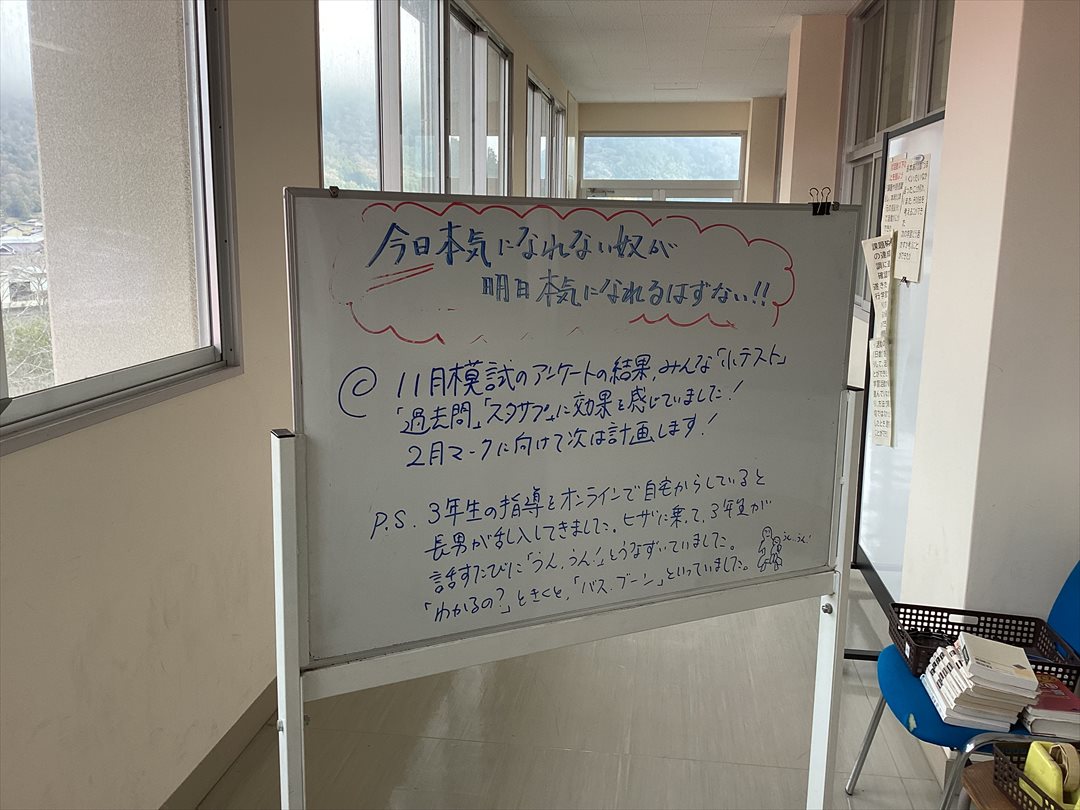 今日本気になれない奴が
明日本気になれるはずない!!
◎ 11月模試のアンケートの結果、みんな「小テスト」
「過去問」「スタサプ」に効果を感じていました!
2月マークに向けて次は計画します!
P.S. 3年生の指導をオンラインで自宅からしていると
長男が乱入してきました。ヒザに乗って、3年生が
話すたびに「うん、うん!」とうなずいていました。
「わかるの?」ときくと、「バス、ブーン」といっていました。
うん、うん!